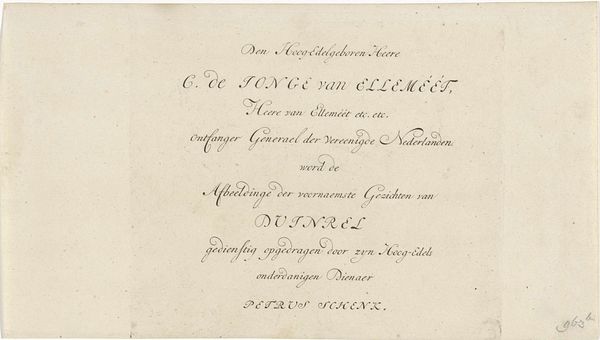 Den Hoog-Edelgeboren Heere
C. de JONGE van ELLEMÉÉT,
Heere van Elleméét etc. etc.
ontfanger Generael der Vereenigde Nederlanden
word de
Afbeeldinge der voornaemste Gezichten van
DUINREL
gedienstig opgedragen door zyn Hoog-Edels
onderdanigen Dienaer
PETRUS SCHENK.
963b